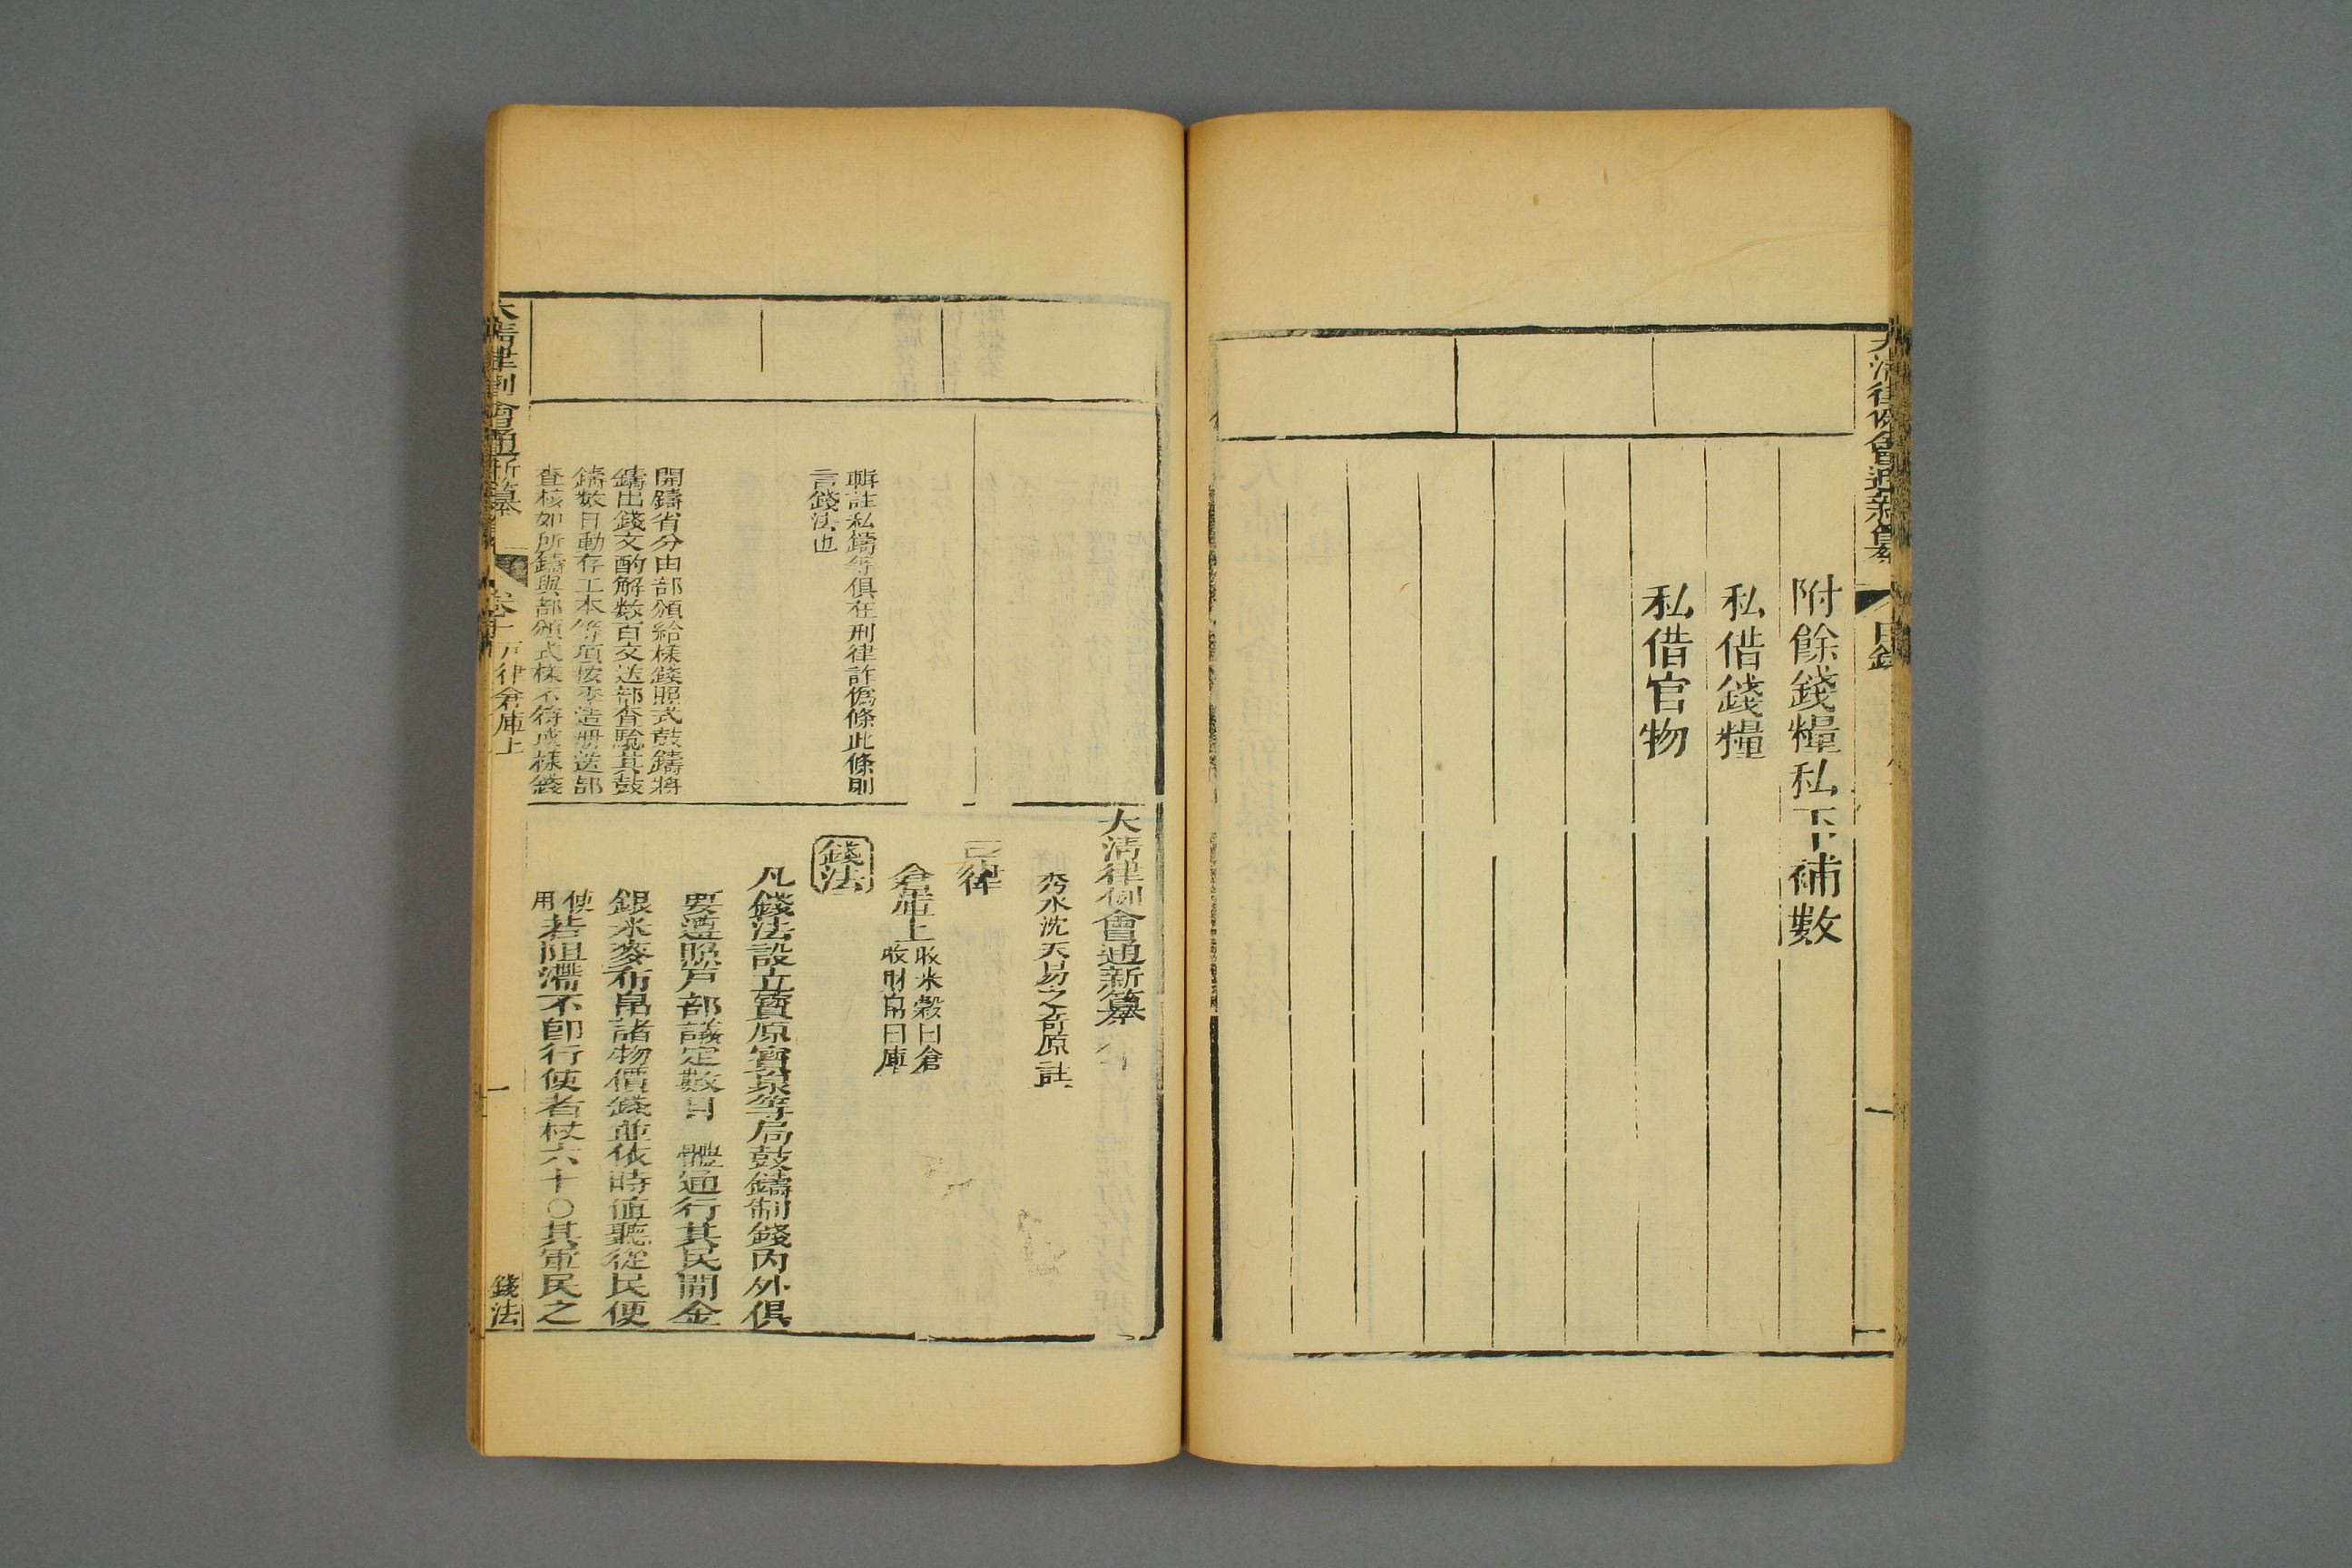 大清律例會通新纂
目錄
一
附餘錢糧私下補數
私借錢糧
私借官物
輯註私鑄等俱在刑律詐僞條此條則
言錢法也
開鑄省分由部頒給樣錢照式鼓鑄將
鑄出錢文酌解數百文送部查驗其鼓
鑄數目動存工本等項按季造册送部
查核如所鑄與部頒式樣不符或樣錢
大清律例會通新纂
沈天易之奇原註
戸律
倉庫上
收米穀曰倉
收財帛曰庫
錢法
凡錢法設立寶源寶泉等局鼓鑄制錢內外俱
要遵照戸部議定數目 體通行其民間金
銀米麥布帛諸物價錢並依時値聽從民便
使
用
若阻滯不即行使者杖六十〇其軍民之
大清律例會通新纂
戸律倉庫上
一
錢法